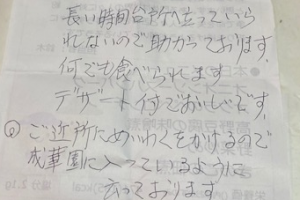 長い時間台所へ立っていら
れないので助かっております。
何でも食べられます
デザート付でおいしいです。
◎ご近所にめいわくをかけるので
成華園に入っているように
云っております